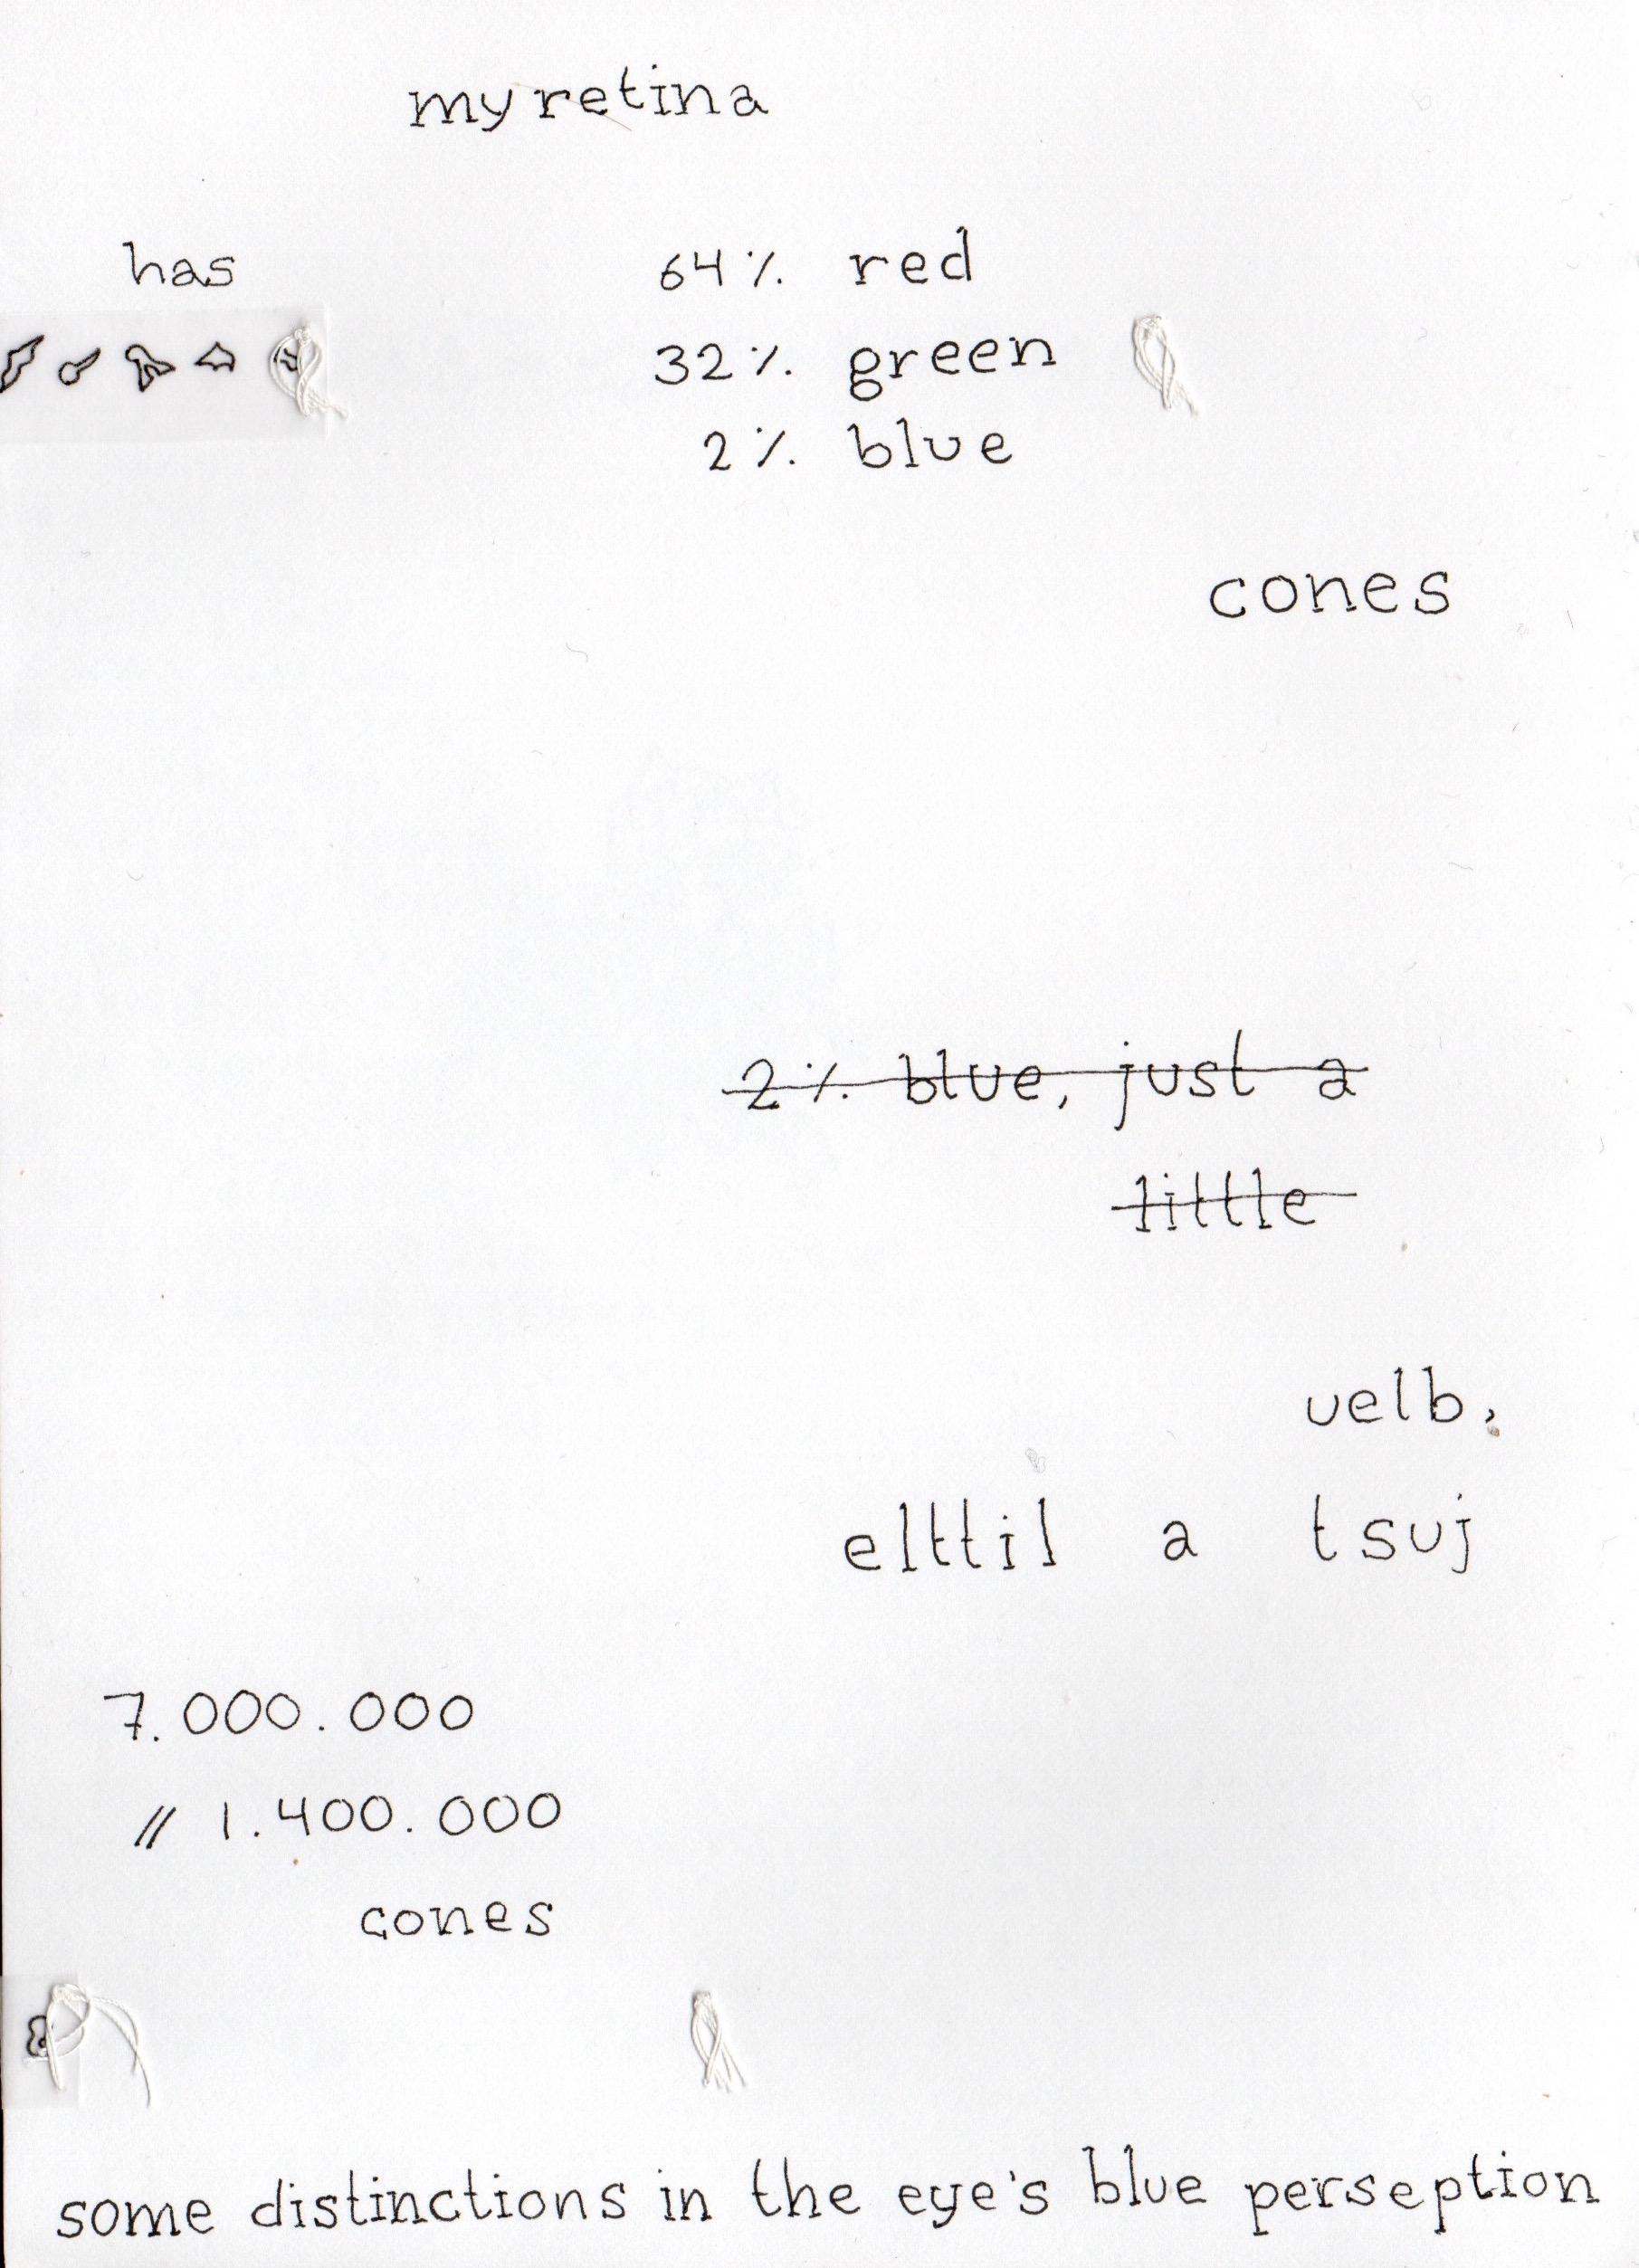 my retina
has 64% red
32% green
2% blue
cones
2% blue, just a
little
uelb,
elttil a tsuj
7.000.000
// 1.400.000
cones
some distinctions in the eye's blue perseption